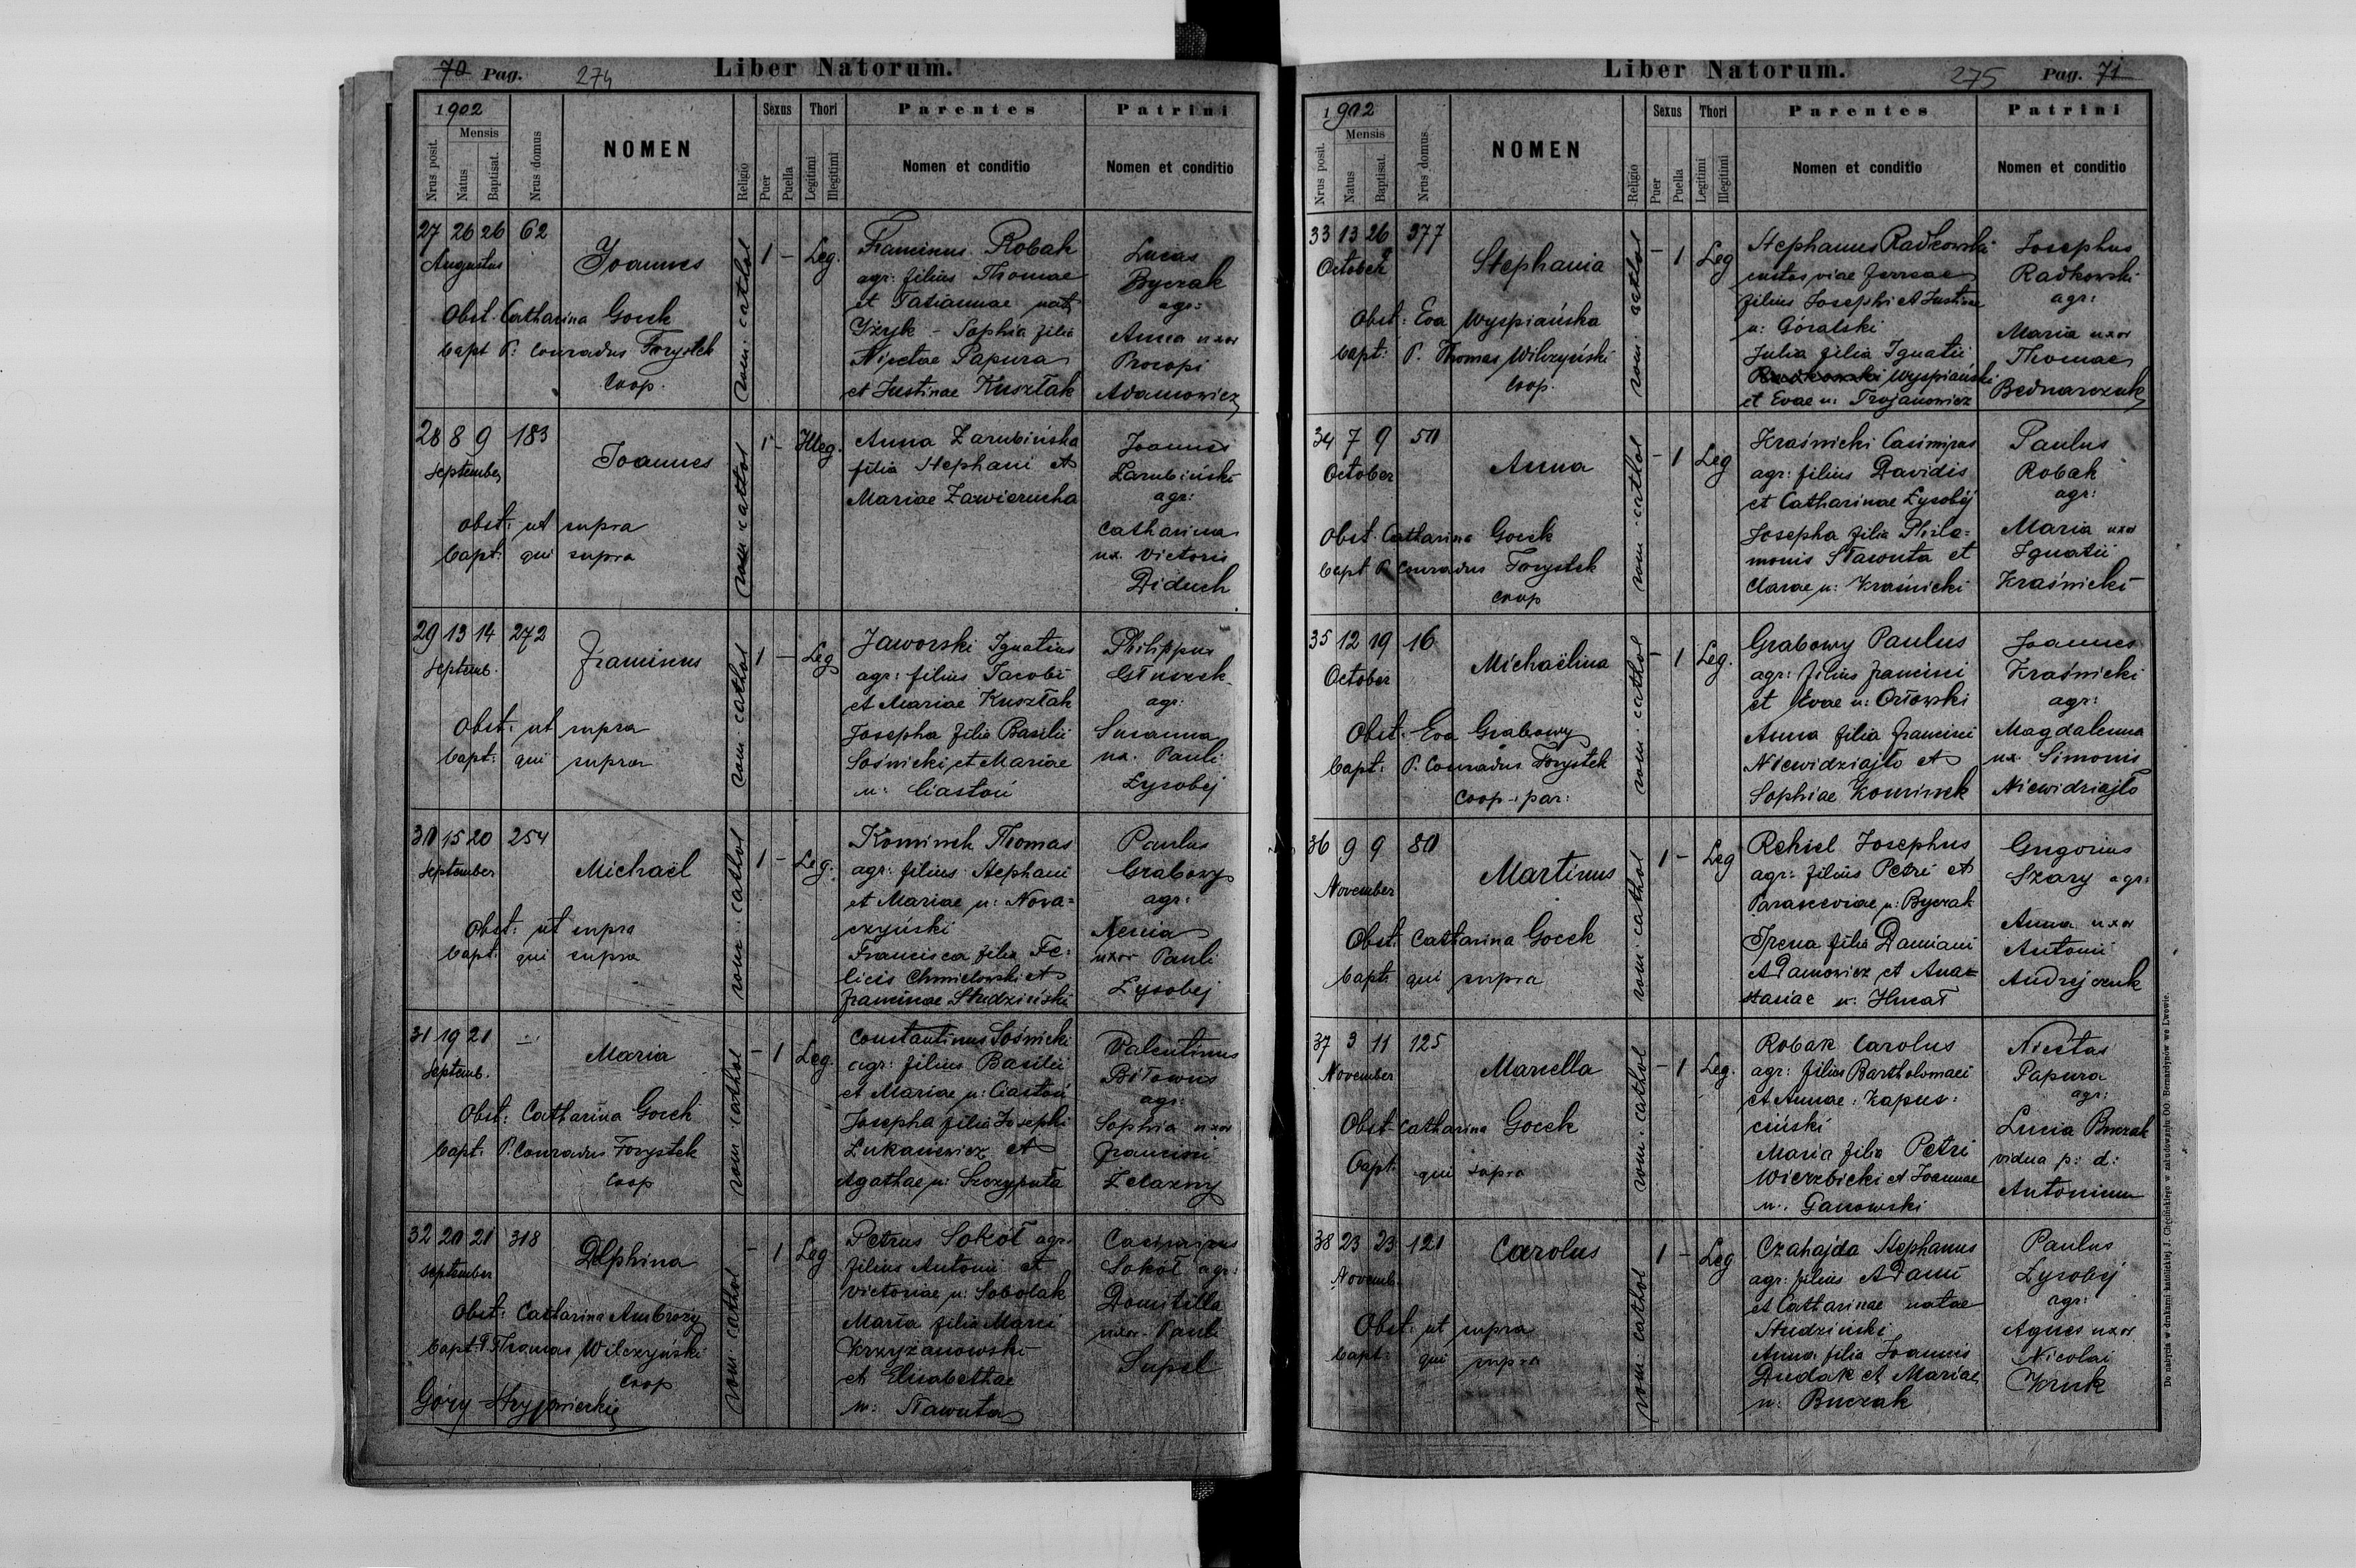 70 Pag. 274 Liber Natorum.
1902
Mensis
Nrus posit. Natus Baptisat. Nrus domus
NOMEN
Religio
Sexus Puer Puella
Thori Legitimi Illegitimi
Parentes
Nomen et conditio
Patrini
Nomen et conditio
27 26 26 62
Augustus
Joannes
Obst. Catharina Gocek
bapt P: Conradus Forystek
Coop.
rom: cathol
1 - Leg.
Robak
agr: filius Thomae
et Tatiannae nat
Gżyk - Sophia filia
Nicetae Papura
et Justinae Kusztak
Lucas
Byczak
agr:
Anna uxor
Procopi
Adamowicz
28 8 9 183
September
Joannes
Obst: ut supra
bapt: qui supra
rom cathol
1 - Illeg.
Anna Zarubińska
filia Stephani et
Mariae Zawierucha
Joannes
Zarubiński
agr:
Catharina
ux. Victoris
Diduch
29 13 14 272
Septemb.
Franciscus
Obst: ut supra
bapt: qui supra
rom: cathol
1 - Leg
Jaworski Ignatius
agr: filius Jacobi
et Mariae Kusztak
Josepha filia Basilii
Sośnicki et Mariae
n: Ciastoń
Philippus
Głuszek
agr:
Susanna
ux. Pauli
Łysobej
30 15 20 254
September
Michaël
Obst: ut supra
bapt: qui supra
rom: cathol
1 - Leg:
Kominek Thomas
agr: filius Stephani
et Mariae n: Nowa=
czyński
Francisca filia Fe=
licis Chmielowski et
Franciscae Studziński
Paulus
Grabowy
agr:
uxor Pauli
Łysobej
31 19 21 -
Septemb.
Maria
Obst: Catharina Gocek
bapt: P. Conradus Forystek
Coop
rom cathol
- 1 Leg.
Constantinus Sośnicki
agr: filius Basilii
et Mariae n: Ciastoń
Josepha filia Josephi
Łukasiewicz et
Agathae n: Szczyputa
Valentinus
Biłowus
agr:
Sophia uxor
Francisci
Żelazny
32 20 21 318
September
Delphina
Obst: Catharina Ambroży
bapt: P. Thomas Wilczyński
Coop
Góry Stryjowieckie
rom cathol
- 1 Leg
Petrus Sokół agr:
filius Antonii et
Victoriae n: Sobolak
Maria filia Marci
Krzyżanowski
et Elisabethae
n: Sławuta
Casimirus
Sokół agr:
Domitilla
uxor Pauli
Supel
Liber Natorum. 275 Pag. 71
1902
Mensis
Nrus posit. Natus Baptisat. Nrus domus
NOMEN
Religio
Sexus Puer Puella
Thori Legitimi Illegitimi
Parentes
Nomen et conditio
Patrini
Nomen et conditio
33 13 26 377
October
Stephania
Obst: Eva Wyspiańska
bapt: P. Thomas Wilczyński
Coop.
rom: cathol
- 1 Leg
Stephanus Radkowski
custos viae ferreae
filius Josephi et Justinae
n: Góralski
Julia filia Ignatii
Radkowski Wyspiański
et Evae n: Trojanowicz
Josephus
Radkowski
agr:
Maria uxor
Thomae
Bednarczuk
34 7 9 50
October
Anna
Obst. Catharina Gocek
bapt P. Conradus Forystek
Coop
rom cathol
- 1 Leg
Kraśnicki Casimirus
agr: filius Davidis
et Catharinae Łysobój
Josepha filia Phila=
monis Sławuta et
Clarae n: Kraśnicki
Paulus
Robak
agr:
Maria uxor
Ignatii
Kraśnicki
35 12 19 16
October
Michaëlina
Obst. Eva Grabowy
bapt: P. Conradus Forystek
Coop. par:
rom: cathol
- 1 Leg.
Grabowy Paulus
agr: filius Francisci
et Evae n: Orłowski
Anna filia Francisci
Niewidziajło et
Sophiae Kominek
Joannes
Kraśnicki
agr:
Magdalena
ux. Simonis
Niewidziajło
36 9 9 80
November
Martinus
Obst: Catharina Gocek
bapt: qui supra
rom: cathol
1 - Leg
Rehiel Josephus
agr: filius Petri et
Parasceviae n: Byczak
Irena filia Damiani
Adamowicz et Ana=
stasiae n: Hucał
Gregorius
Szary agr:
Anna uxor
Antonii
Andrejczuk
37 3 11 125
November
Marcella
Obst Catharina Gocek
Bapt: qui supra
rom: cathol
- 1 Leg.
Robak Carolus
agr: filius Bartholomaei
et Annae: Kapus=
ciński
Maria filia Petri
Wierzbicki et Joannae
n: Ganowski
Nicetas
Papura
agr:
Lucia Buczak
vidua p: d:
Antonium
38 23 23 121
Novemb.
Carolus
Obst. ut supra
bapt: qui supra
rom: cathol
1 - Leg
Czahajda Stephanus
agr: filius Adami
et Catharinae natae
Studziński
Anna filia Joannis
Dudak et Mariae
n: Buczak
Paulus
Łysobój
agr:
Agnes uxor
Nicolai
Kruk
Do nabycia w drukarni katolickiej J. Chęcińskiego w zabudowaniu OO. Bernardynów we Lwowie.